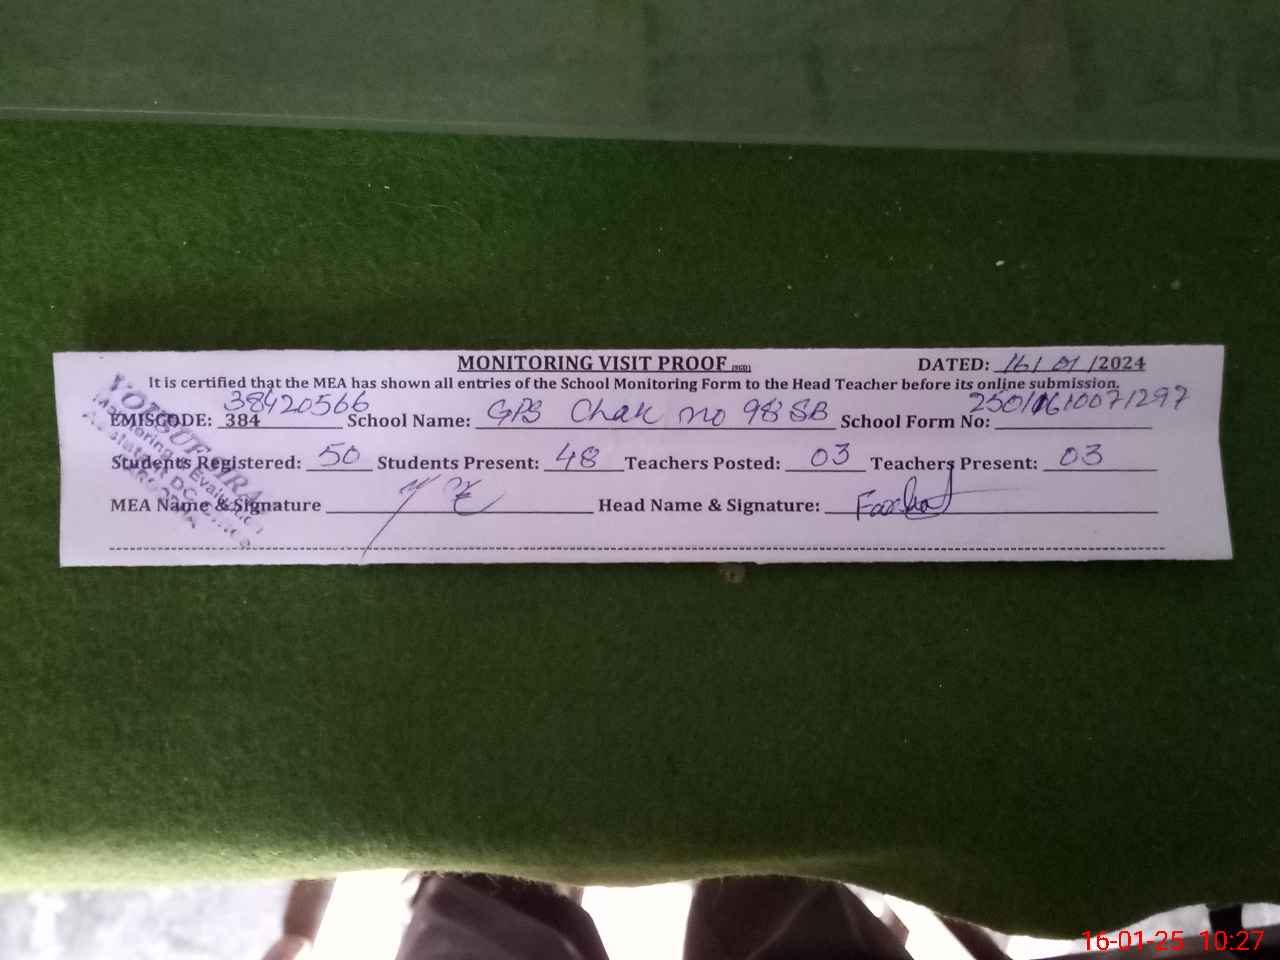 MONITORING VISIT PROOF (SGD) DATED: 16/01/2024
It is certified that the MEA has shown all entries of the School Monitoring Form to the Head Teacher before its online submission.
38420566
EMISCODE: 384 School Name: GPS Chak no 98 SB School Form No: 25011610071297
Students Registered: 50 Students Present: 48 Teachers Posted: 03 Teachers Present: 03
MEA Name & Signature Head Name & Signature: Farhat
YOUSUF
Monitoring & Evaluation
Assistant DC Office
16-01-25 10:27